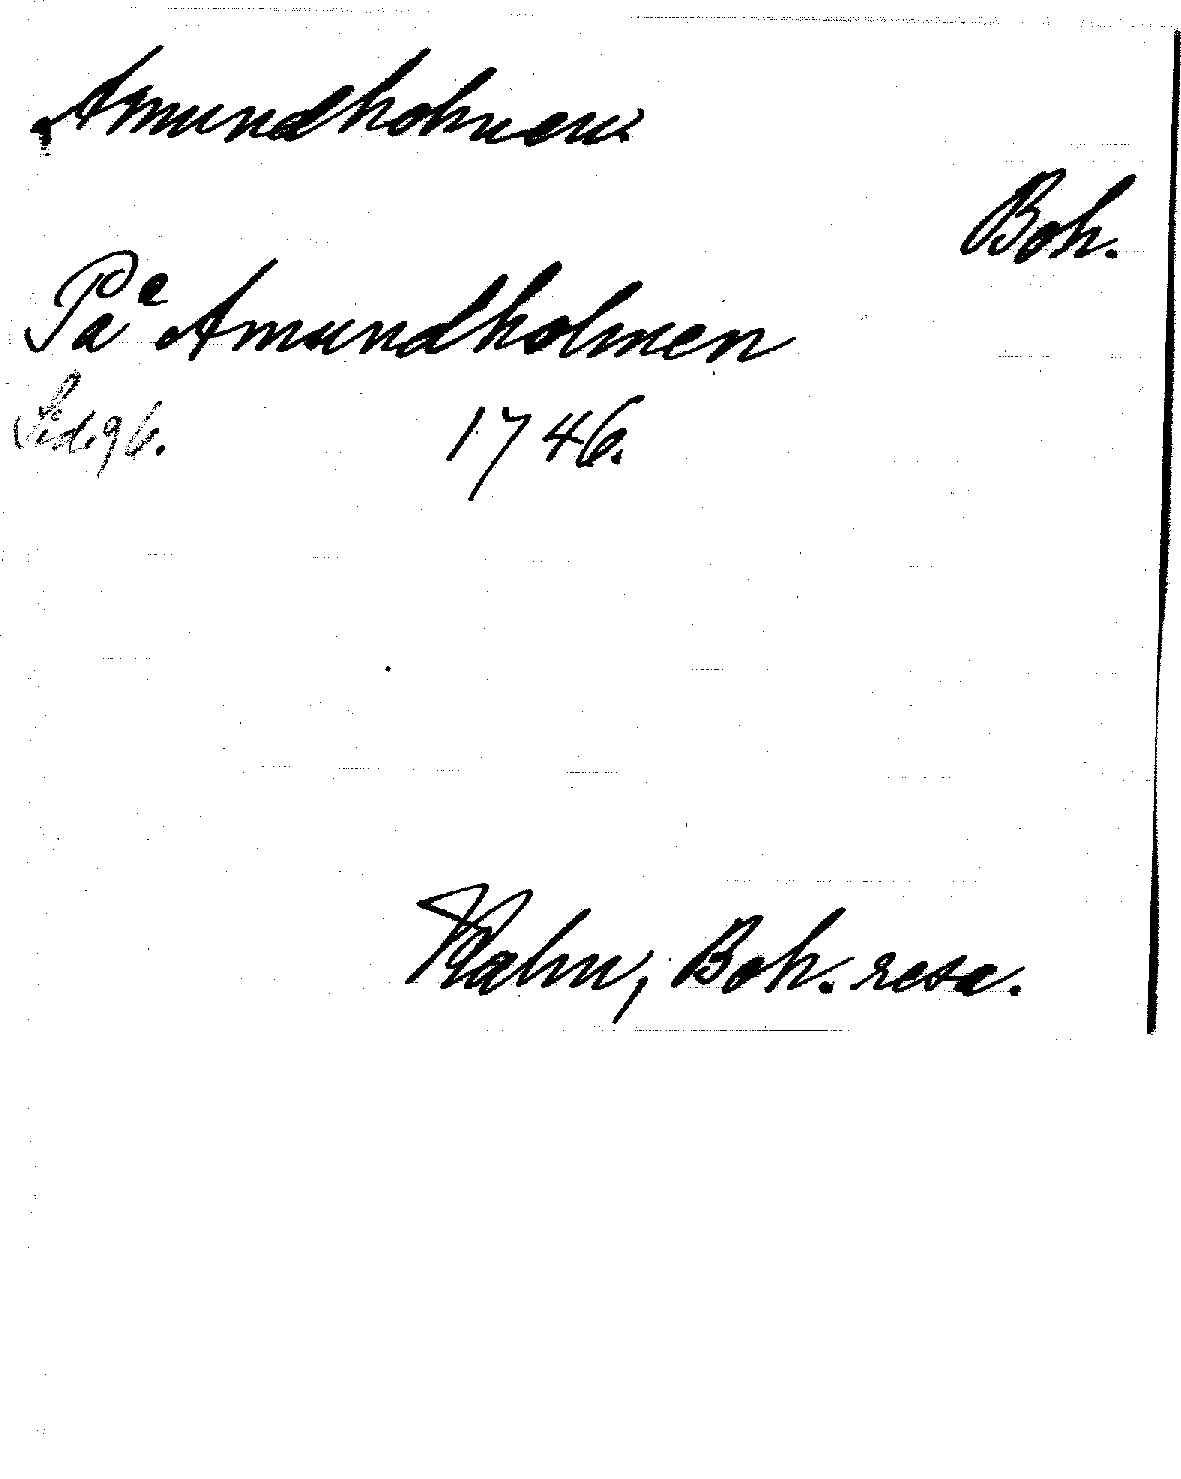 Amundholmen.
Boh.
På Amundholmen
Sid. 96. 1746.
Kalm, Boh. resa.